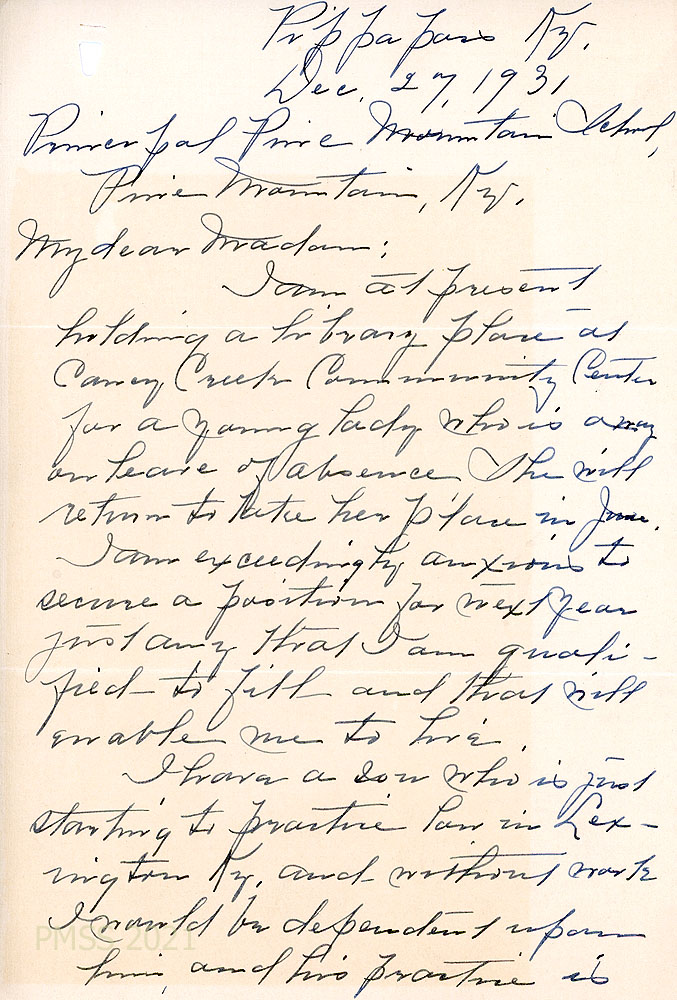 Pippapass Ky.
Dec. 27, 1931
Principal Pine Mountain School,
Pine Mountain, Ky.
My dear Madam:
I am at present
holding a library place at
Caney Creek Community Center
for a young lady who is away
on leave of absence. She will
return to take her place in June.
I am exceedingly anxious to
secure a position for next year
just any that I am quali-
fied to fill and that will
enable me to live.
I have a son who is just
starting to practice law in Lex-
ington Ky. and without work
I would be dependent upon
him, and his practice is
PMSS 2021